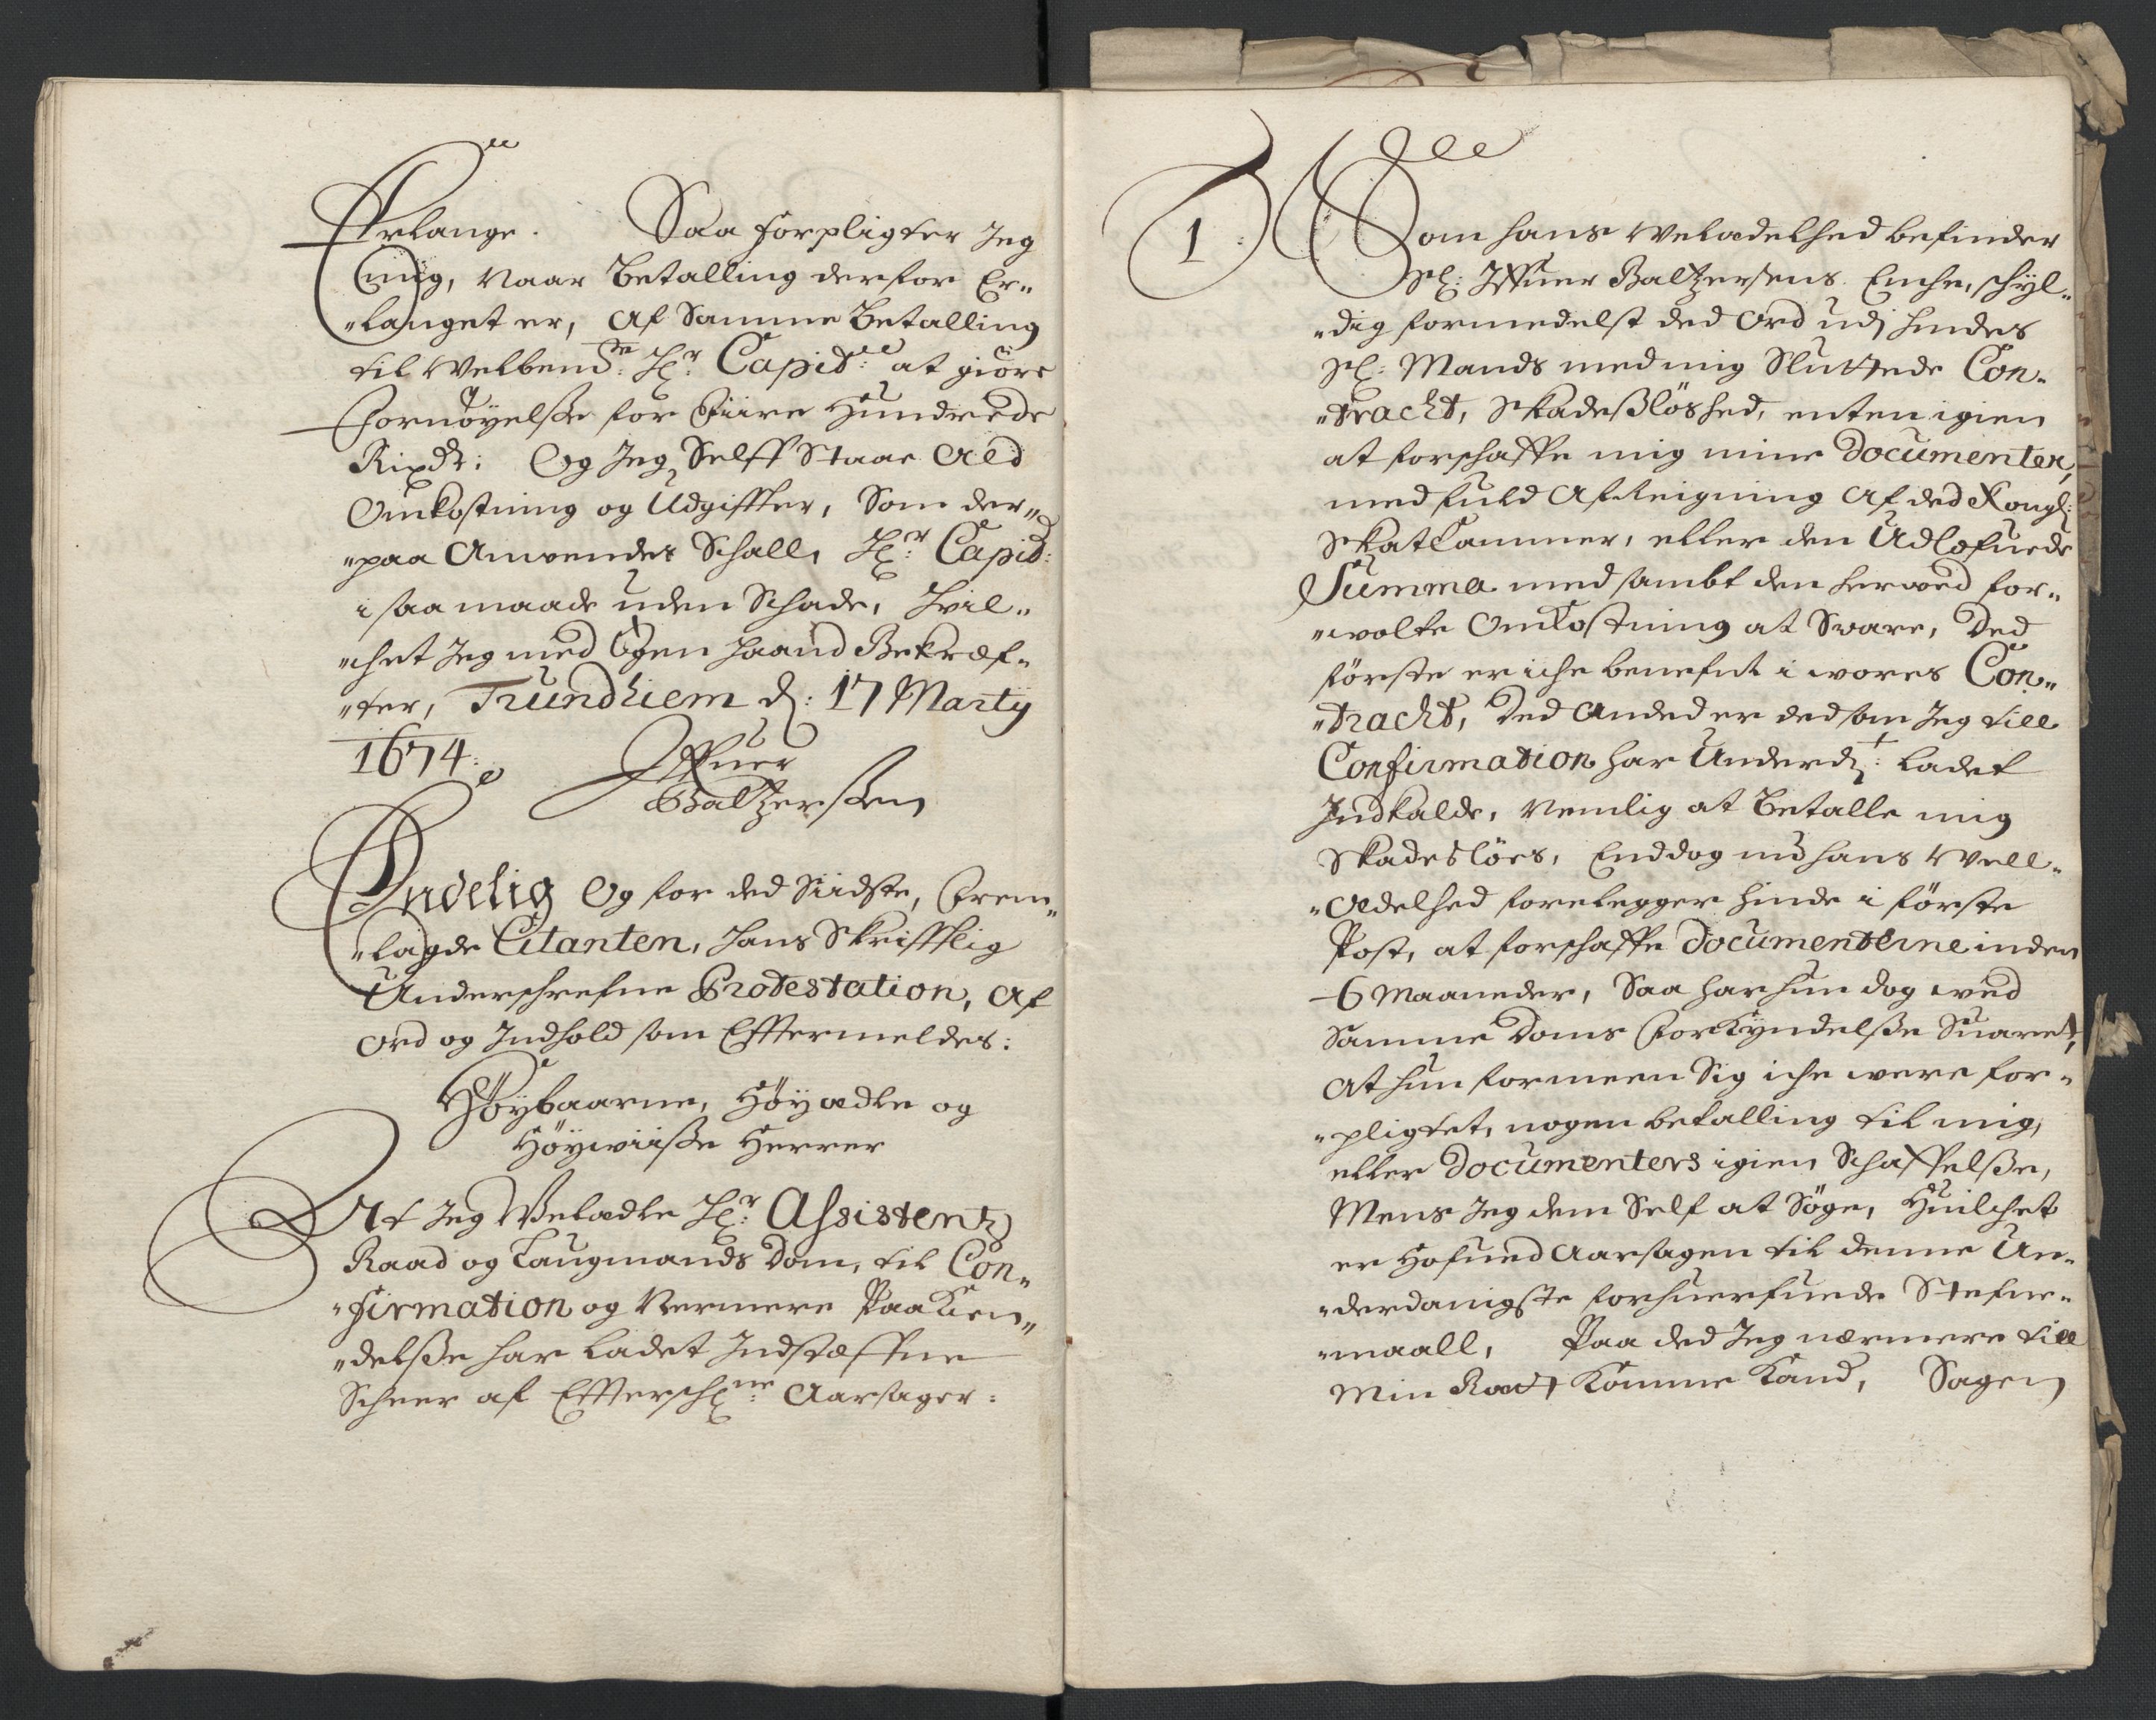 Erlange. Saa forpligter Jeg
mig, Naar Betalling derfor Er„
„langet er, Af Samme Betalling
til Welbem:te Hr: Capit: at giöre
Fornöyelsse for Fiire Hundrede
Rixdr: Og Jeg Selff Staar Ald
Omkostning og Udgiffter, Som der„
„paa Anvendes Schall, Hr: Capit:
i saa maade uden Schade, Hvil„
„chet Jeg med Egen Haand Bekræf„
„ter, Trundhiem d: 17 Marty
1674: Iffuer
Baltzerssen
Endelig Og for ded Siidste, Frem„
„lagde Citanten, Hans Skrifftlig
Underschrefne Protestation, Af
Ord og Indhold som Efftermeldes:
Höybaarne, Höyædle og
Höywiisse Herrer
At Jeg Welædle Hr: Assistentz
Raad og Laugmands Dom, til Con„
„firmation og Nermere Paakien„
„delsse har ladet Indstæffne
Scheer af Effterschr:ne Aarsager:
1: Som hans Welædelhed befinder
Sl: Iffuer Baltzersens Enche, schyl„
„dig formedelst ded Ord udj hindes
Sl: Mands med mig Sluttede Con„
„tracht, Skadesslöshed, enten igien
at forschaffe mig mine Documenter,
med fuld Afreigning Af ded Kongl:
Skatkammer, eller den Udlofuede
Summa med sambt den herved for„
„wolte Omkostning at Svare, Ded
förste er iche benefnt i wores Con„
„tracht, Ded Anded er ded som Jeg till
Confirmation har Underd:t ladet
Indkalde, Nemlig at Betalle mig
Skadeslöes, Enddog nu hans Well„
„Ædelhed forelegger hinde i förste
Post, at forschaffe Documenterne inden
6 Maaneder, Saa har hun dog wed
Samme Doms Forkyndelsse Suaret,
At hun formeen Sig iche were for„
„pligtet, nogen betalling til mig,
eller Documenters igien Schaffelsse,
Mens Jeg dem Self at Söge, Huilchet
er Hofued Aarsagen til denne Un„
„derdanigste forhuerfuede Stefne„
„maall, Paa ded Jeg nærmere till
Min Rætt Komme Kand, Sagen